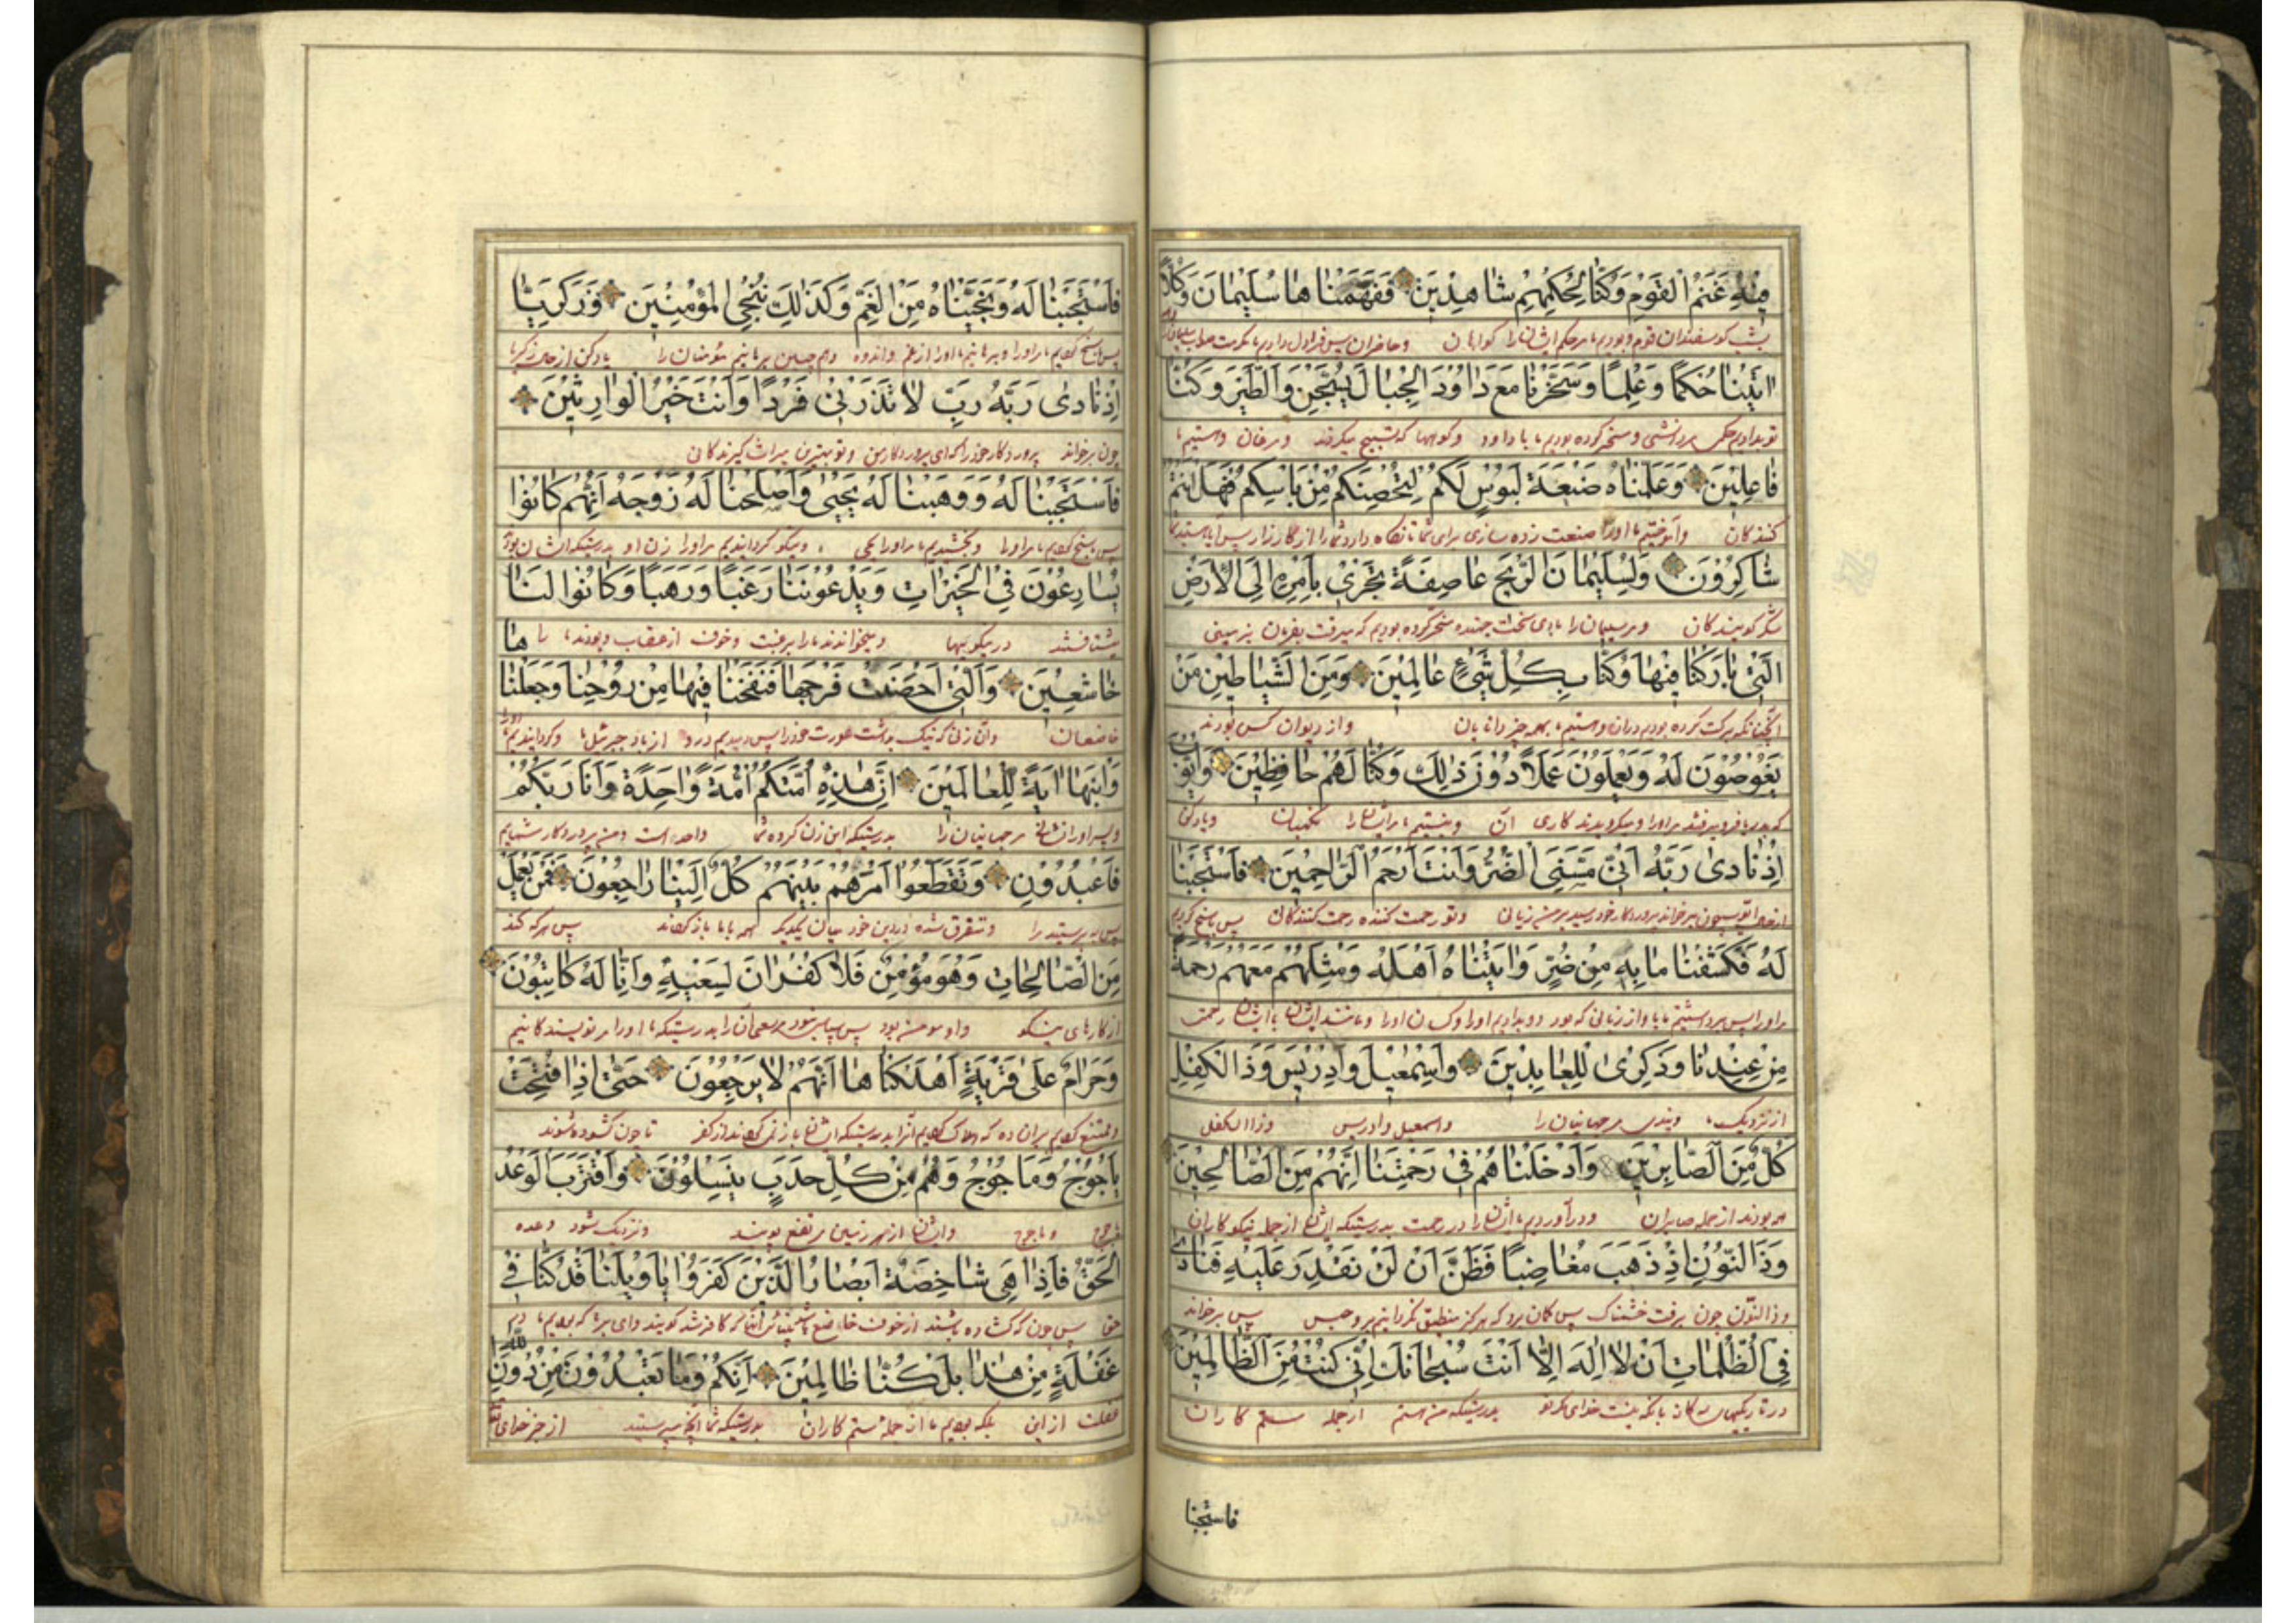 فِيهِ غَنَمُ الْقَوْمِ وَكُنَّا لِحُكْمِهِمْ شَاهِدِينَ فَفَهَّمْنَاهَا سُلَيْمَانَ وَكُلًّا
بشب کوسفندان قوم و بودیم ما مر حکم ایشان را کواهان و حاضران پس
اٰتَيْنَا حُكْمًا وَعِلْمًا وَسَخَّرْنَا مَعَ دَاوُدَ الْجِبَالَ يُسَبِّحْنَ وَالطَّيْرَ وَكُنَّا
و مسخر کرده بودیم ما با داود کوهها که تسبیح میکردند و مرغان و هستیم ما
فَاعِلِينَ وَعَلَّمْنَاهُ صَنْعَةَ لَبُوسٍ لَكُمْ لِتُحْصِنَكُمْ مِنْ بَأْسِكُمْ فَهَلْ أَنْتُمْ
کنندکان و آموختیم ما او را صنعت زره سازی برای شما تا نکاه دارد شما را از کارزار پس آیا هستید
شَاكِرُونَ وَلِسُلَيْمَانَ الرِّيحَ عَاصِفَةً تَجْرِي بِأَمْرِهِ إِلَى الْأَرْضِ
شکر کویندکان و مر سلیمان را باد سخت جهنده مسخر کرده بودیم که میرفت بفرمان بزمینی
الَّتِي بَارَكْنَا فِيهَا وَكُنَّا بِكُلِّ شَيْءٍ عَالِمِينَ وَمِنَ الشَّيَاطِينِ مَنْ
برکت کرده بودیم دران و هستیم ما بهمه چیز دانایان و از دیوان کس بودند
يَغُوصُونَ لَهُ وَيَعْمَلُونَ عَمَلًا دُونَ ذٰلِكَ وَكُنَّا لَهُمْ حَافِظِينَ وَأَيُّوبَ
که بدریا فرو میرفتند مر او را و میکردند کاری آن و هستیم ما مر ایشان را نکهبان و یاد کن
إِذْ نَادٰى رَبَّهُ أَنِّي مَسَّنِيَ الضُّرُّ وَأَنْتَ أَرْحَمُ الرَّاحِمِينَ فَاسْتَجَبْنَا
چون بر خواند پروردکار خود رسید بر من زیانی و تو رحمت کننده رحمت کنندکانی پس پاسخ کردیم
لَهُ فَكَشَفْنَا مَا بِهِ مِنْ ضُرٍّ وَاٰتَيْنَاهُ أَهْلَهُ وَمِثْلَهُمْ مَعَهُمْ رَحْمَةً
مر او را پس برداشتیم ما از زیانی که بود و بدادیم او را کسان او را و مانند ایشان با ایشان رحمت
مِنْ عِنْدِنَا وَذِكْرٰى لِلْعَابِدِينَ وَإِسْمٰعِيلَ وَإِدْرِيسَ وَذَا الْكِفْلِ
از نزدیک ما و پندی مر جهانیان را و اسمعیل و ادریس و ذا الکفل
كُلٌّ مِنَ الصَّابِرِينَ وَأَدْخَلْنَاهُمْ فِي رَحْمَتِنَا إِنَّهُمْ مِنَ الصَّالِحِينَ
همه بودند از جمله صابران و درآوردیم ما ایشان را در رحمت بدرستیکه ایشان از جمله نیکو کاران
وَذَا النُّونِ إِذْ ذَهَبَ مُغَاضِبًا فَظَنَّ أَنْ لَنْ نَقْدِرَ عَلَيْهِ فَنَادٰى
و ذا النون چون برفت خشمناک پس کمان برد که هرکز پس بر خواند
فِي الظُّلُمَاتِ أَنْ لَا إِلٰهَ إِلَّا أَنْتَ سُبْحَانَكَ إِنِّي كُنْتُ مِنَ الظَّالِمِينَ
در تاریکیها بانکه نیست خدای مکر تو بدرستیکه من هستم از جمله ستم کاران
فاستجبنا
فَاسْتَجَبْنَا لَهُ وَنَجَّيْنَاهُ مِنَ الْغَمِّ وَكَذٰلِكَ نُنْجِي الْمُؤْمِنِينَ وَزَكَرِيَّا
پس پاسخ کردیم ما مر او را و برهانیدیم ما او را از غم و اندوه و همچنین برهانیم مؤمنان را یاد کن زکریا
إِذْ نَادٰى رَبَّهُ رَبِّ لَا تَذَرْنِي فَرْدًا وَأَنْتَ خَيْرُ الْوَارِثِينَ
چون بر خواند پروردکار خود را که ای پروردکار من و تو بهترین میراث کیرندکانی
فَاسْتَجَبْنَا لَهُ وَوَهَبْنَا لَهُ يَحْيٰى وَأَصْلَحْنَا لَهُ زَوْجَهُ إِنَّهُمْ كَانُوا
پس پاسخ کردیم ما مر او را و بخشیدیم ما مر او را یحیی و نیکو کردانیدیم مر او را زن او بدرستیکه ایشان بودند
يُسَارِعُونَ فِي الْخَيْرَاتِ وَيَدْعُونَنَا رَغَبًا وَرَهَبًا وَكَانُوا لَنَا
میشتافتند در نیکوییها و میخواندند ما را برغبت و خوف از عقاب و بودند ما را
خَاشِعِينَ وَالَّتِي أَحْصَنَتْ فَرْجَهَا فَنَفَخْنَا فِيهَا مِنْ رُوحِنَا وَجَعَلْنَاهَا
خاضعان و آن زنی که نیک بداشت عورت خود را پس دمیدیم درو از باد جبرئیل ما و کردانیدیم ما او را
وَابْنَهَا اٰيَةً لِلْعَالَمِينَ إِنَّ هٰذِهِ أُمَّتُكُمْ أُمَّةً وَاحِدَةً وَأَنَا رَبُّكُمْ
و پسر او را نشانه مر جهانیان را بدرستیکه این کروه شما واحد است و من پروردکار شمایم
فَاعْبُدُونِ وَتَقَطَّعُوا أَمْرَهُمْ بَيْنَهُمْ كُلٌّ إِلَيْنَا رَاجِعُونَ فَمَنْ يَعْمَلْ
پس بپرستید مرا و متفرق شدند در دین خود میان یکدیکر همه بما باز پس هر که کند
مِنَ الصَّالِحَاتِ وَهُوَ مُؤْمِنٌ فَلَا كُفْرَانَ لِسَعْيِهِ وَإِنَّا لَهُ كَاتِبُونَ
از کارهای نیکو و او مومن بود پس سعی آن را بدرستیکه ما او را نویسندکانیم
وَحَرَامٌ عَلٰى قَرْيَةٍ أَهْلَكْنَاهَا أَنَّهُمْ لَا يَرْجِعُونَ حَتّٰى إِذَا فُتِحَتْ
و ممتنع کردیم بران ده که هلاک کردیم آنرا بدرستیکه ایشان باز نمی کردند از کفر تا چون کشوده شوند
يَأْجُوجُ وَمَأْجُوجُ وَهُمْ مِنْ كُلِّ حَدَبٍ يَنْسِلُونَ وَاقْتَرَبَ الْوَعْدُ
یاجوج و ماجوج و ایشان از هر زمین مرتفع پویند و نزدیک شود وعده
الْحَقُّ فَإِذَا هِيَ شَاخِصَةٌ أَبْصَارُ الَّذِينَ كَفَرُوا يَا وَيْلَنَا قَدْ كُنَّا فِي
حق پس چون که کشاده باشند از خوف کافر شدند کویند وای بر ما که بودیم ما در
غَفْلَةٍ مِنْ هٰذَا بَلْ كُنَّا ظَالِمِينَ إِنَّكُمْ وَمَا تَعْبُدُونَ مِنْ دُونِ اللّٰهِ
غفلت از این بلکه بودیم ما از جمله ستم کاران بدرستیکه شما آنچه میپرستید از جز خدای